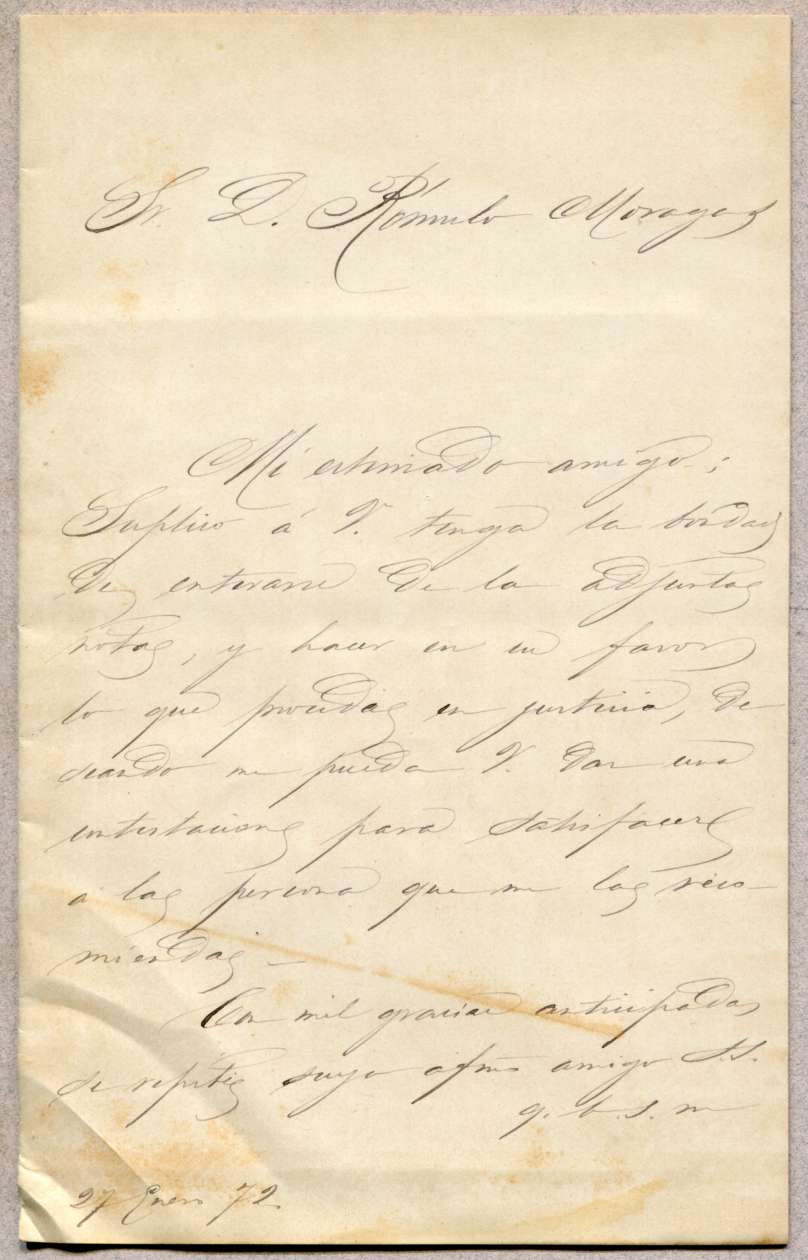 Sr. D. Rómulo Moragas
Mi estimado amigo:
Suplico á V. tenga la bondad
de enterarse de la adjunta
nota, y hacer en su favor
lo que proceda en justicia, de-
seando me pueda V. dar una
contestacion para satisfacer
a la persona que me la reco-
mienda.-
Con mil gracias anticipadas
se repite suyo afmo amigo S.S.
q. b. s. m
27 Enero 72